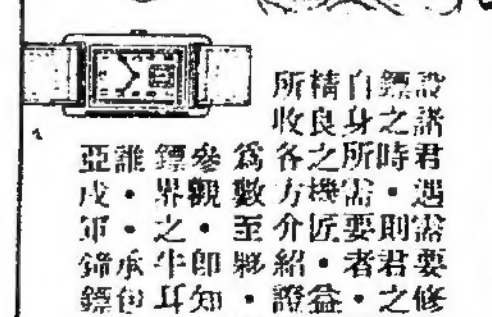 設諸君遇需要修
鏢之時・則君之
自身所需要者・
精良之機匠・益
所收各方介紹證
為數至夥・
參觀・即知
鏢界之牛耳
誰・承伊
亞鐘鏢